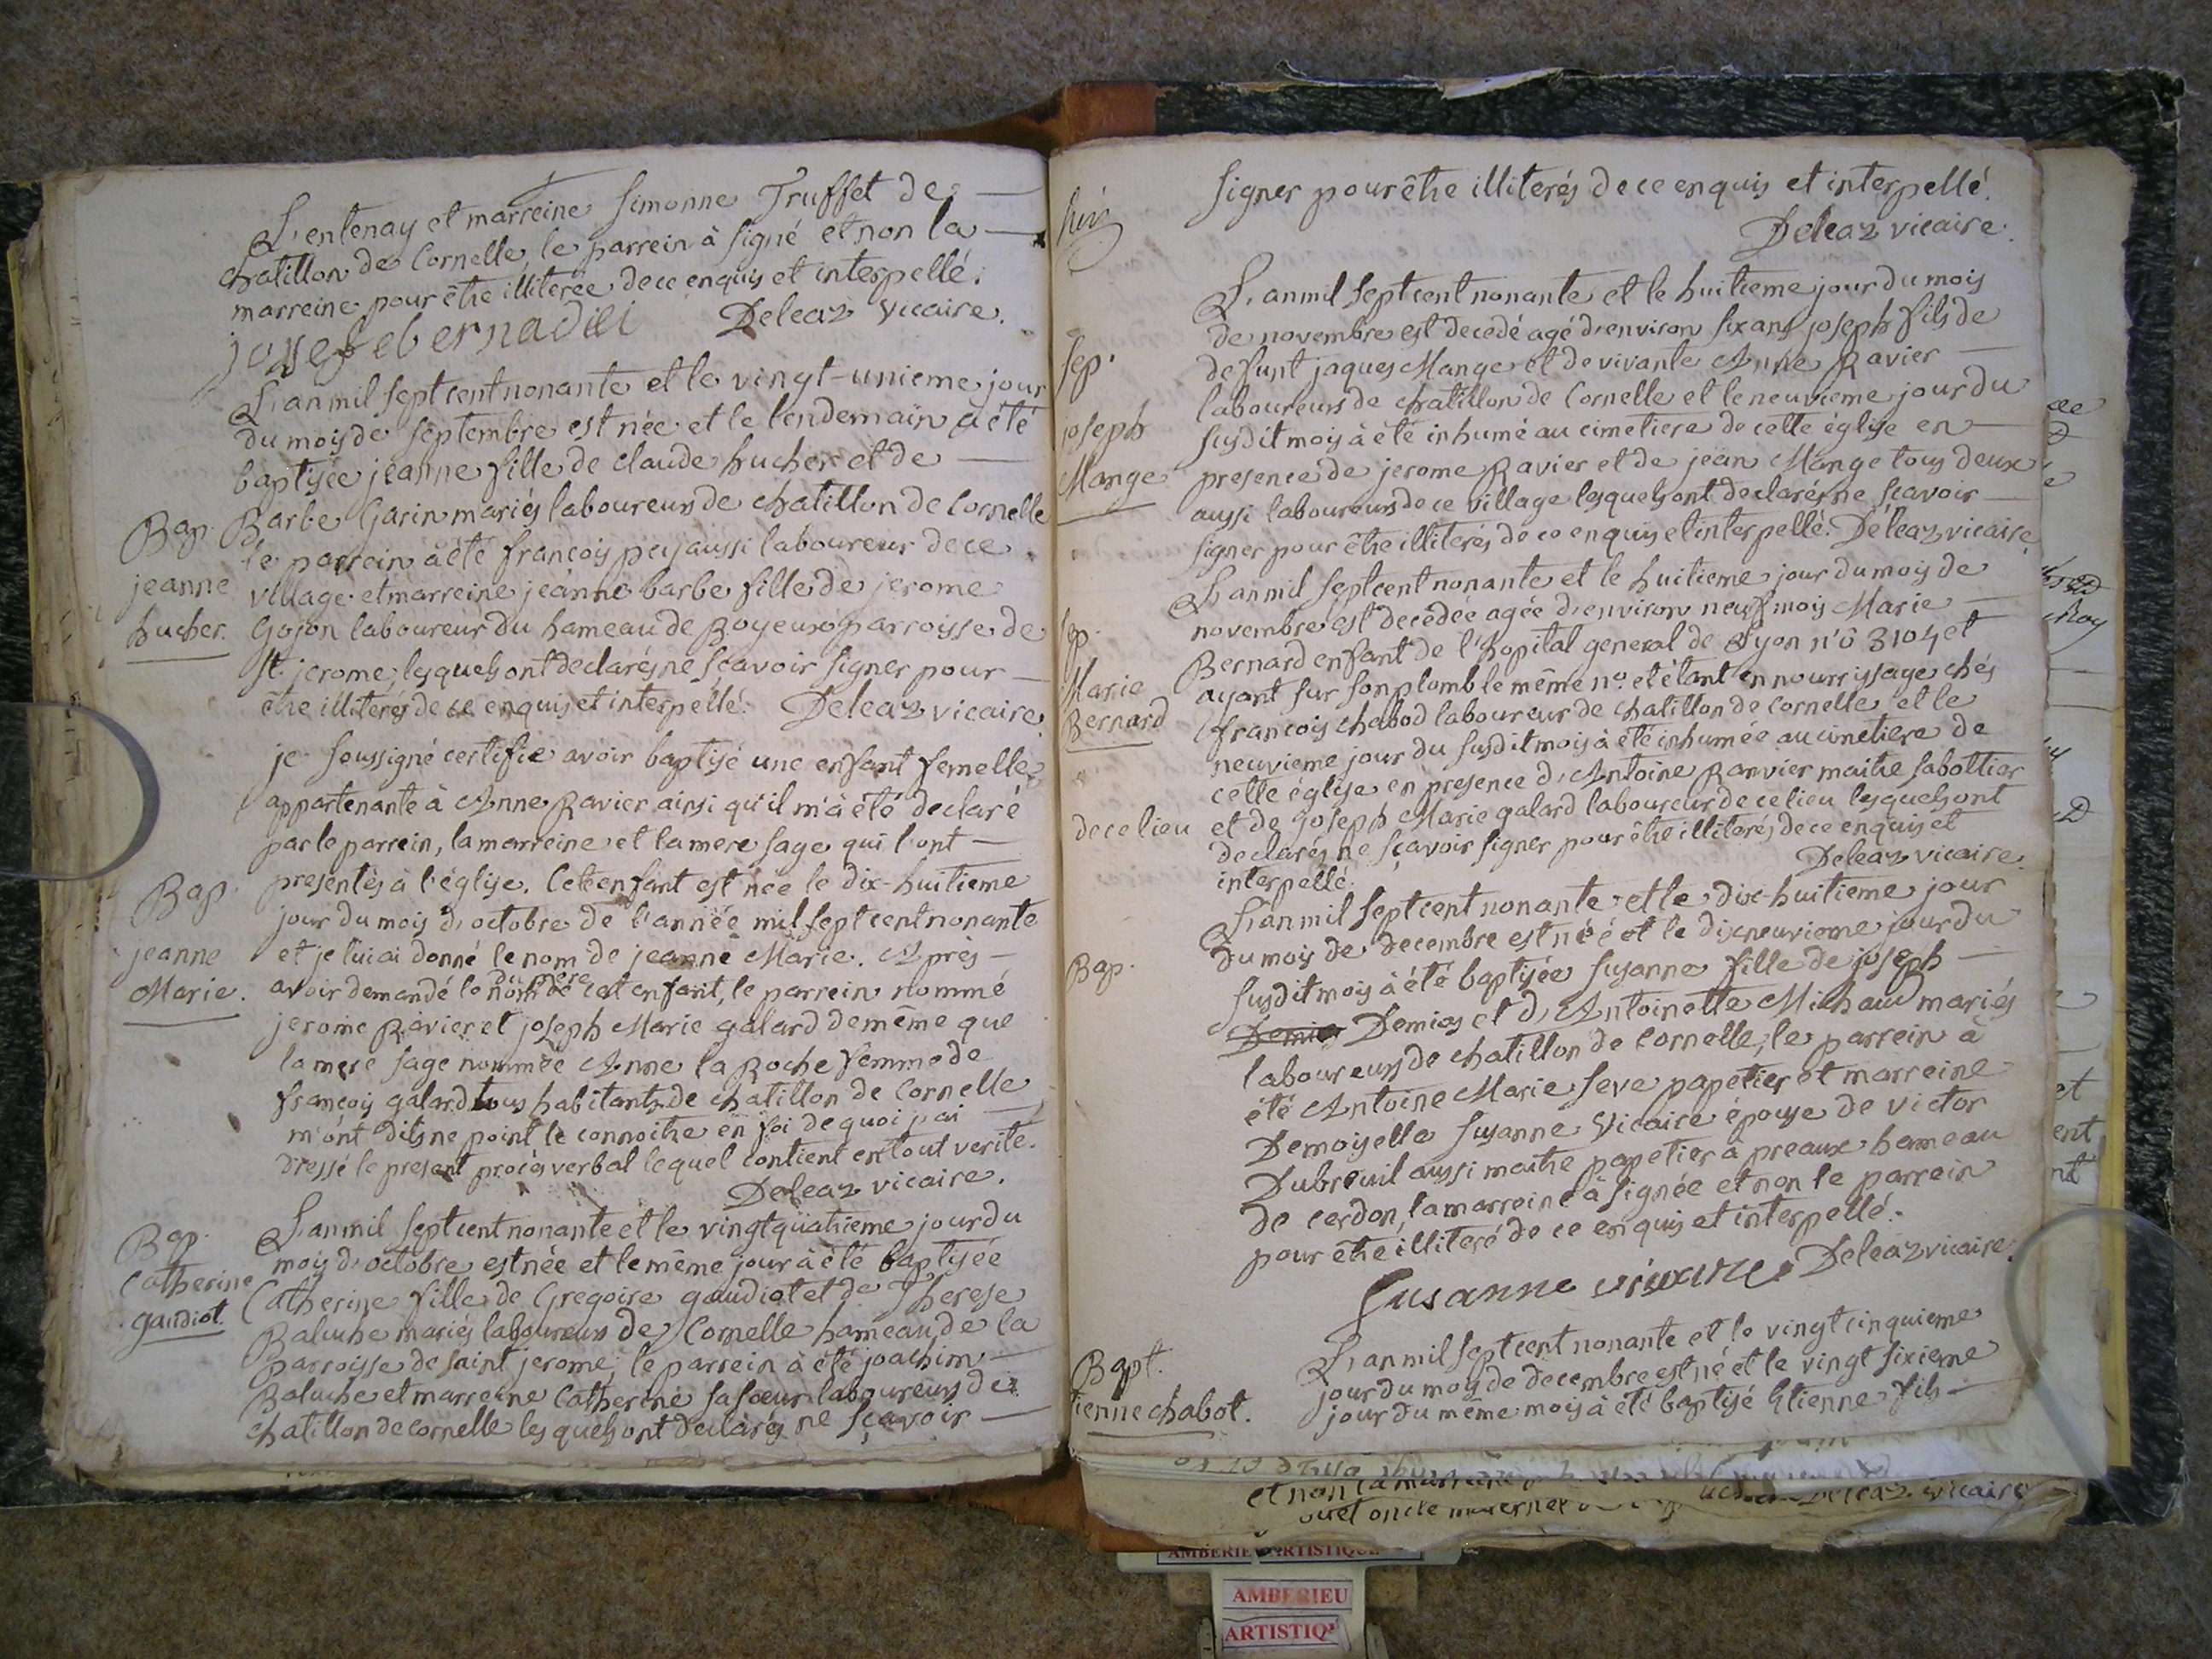 Lentenay et marreine Simonne Truffet de
chatillon de Cornelle, le parrein à signé et non la
marreine pour être illiterée de ce enquis et interpellé.
Deleaz vicaire.
L'an mil sept cent nonante et le vingt-unieme jour
du mois de septembre est née et le lendemain a été
baptisée jeanne fille de claude hucher et de
Bap. Barbe Garin mariés laboureurs de chatillon de Cornelle
le parrein à été françois pey aussi laboureur de ce
jeanne village et marreine jeanne barbe fille de jerome
hucher. Gojon laboureur du hameau de Boyeux parroisse de
St. jerome, lesquels ont declarés ne sçavoir signer pour
être illiterés de ce enquis et interpellé. Deleaz vicaire
je soussigné certifie avoir baptisé une enfant femelle
appartenante à Anne Ravier ainsi qu'il m'à été declaré
par le parrein, la marreine et la mere sage qui l'ont
Bap. presentés à l'église. Cet enfant est née le dix-huitieme
jour du mois d'octobre de l'année mil sept cent nonante
jeanne et je lui ai donné le nom de jeanne Marie. Après
du pere
Marie. avoir demandé le nom de cet enfant, le parrein nommé
jerome Ravier et joseph Marie galard de même que
la mere sage nommée Anne la Roche femme de
françois galard tous habitants de chatillon de Cornelle
m'ont dits ne point le connoitre en foi de quoi j'ai
dressé le present procés verbal lequel contient en tout verité.
Deleaz vicaire.
Bap. L'an mil sept cent nonante et le vingt quatrieme jour du
mois d'octobre est née et le même jour à été baptisée
Catherine Catherine fille de Gregoire gaudiot et de Therese
gaudiot. Baluhe mariés laboureurs de Cornelle hameau de la
parroisse de saint jerome; le parrein à été joachim
Baluhe et marreine Catherine sa soeur laboureurs de
chatillon de cornelle lesquels ont declarés ne sçavoir
signer pour être illiterés de ce enquis et interpellé.
Deleaz vicaire.
L'an mil sept cent nonante et le huitieme jour du mois
de novembre est decedé agé d'environ six ans joseph fils de
Sep. defunt jaques Mange et de vivante Anne Ravier
laboureurs de chatillon de Cornelle et le neuvieme jour du
joseph susdit mois à été inhumé au cimetiere de cette église en
Mange presence de jerome Ravier et de jean Mange tous deux
aussi laboureurs de ce village lesquels ont declarés ne sçavoir
signer pour être illiterés de ce enquis et interpellé. Deleaz vicaire
L'an mil sept cent nonante et le huitieme jour du mois de
novembre est decedée agée d'environ neuf mois Marie
Sep. Bernard enfant de l'hopital general de Lyon n'o 3104 et
Marie ayant sur son plomb le même no. et étant en nourrissage chés
Bernard françois chabod laboureur de chatillon de cornelle et le
neuvieme jour du susdit mois à été inhumée au cimetiere de
cette église en presence d'Antoine Ranvier maitre sabottier
de ce lieu et de joseph Marie galard laboureur de ce lieu lesquels ont
declarés ne sçavoir signer pour être illiterés de ce enquis et
interpellé. Deleaz vicaire.
L'an mil sept cent nonante et le dix-huitieme jour
du mois de decembre est née et le dixneuvieme jour du
Bap. susdit mois à été baptisée Susanne fille de joseph
Demias et d'Antoinette Michaud mariés
laboureurs de chatillon de Cornelle; le parrein à
été Antoine Marie Seve papetier et marreine
Demoiselle Susanne Vicaire épouse de victor
Dubreuil aussi maitre papetier à preaux hameau
de cerdon, la marreine à signée et non le parrein
pour être illiteré de ce enquis et interpellé.
Susanne Deleaz vicaire.
Bapt. L'an mil sept cent nonante et le vingt cinquieme
jour du mois de decembre est né et le vingt sixieme
tienne chabot. jour du même mois à été baptisé Etienne fils
et non la marreine
Deleaz vicaire
AMBERIEU ARTISTIQUE
AMBERIEU
ARTISTIQ